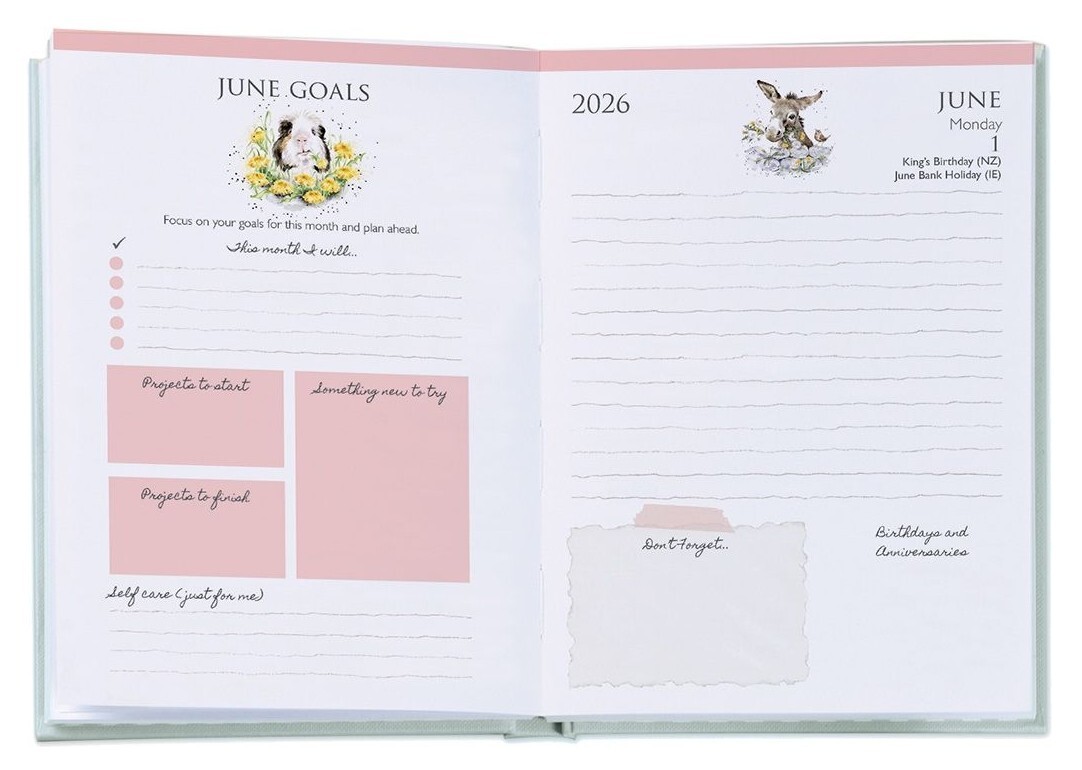 JUNE GOALS
Focus on your goals for this month and plan ahead.
✓
This month I will...
Projects to start
Something new to try
Projects to finish
Self care (just for me)
2026
JUNE
Monday
1
King's Birthday (NZ)
June Bank Holiday (IE)
Don't Forget...
Birthdays and
Anniversaries